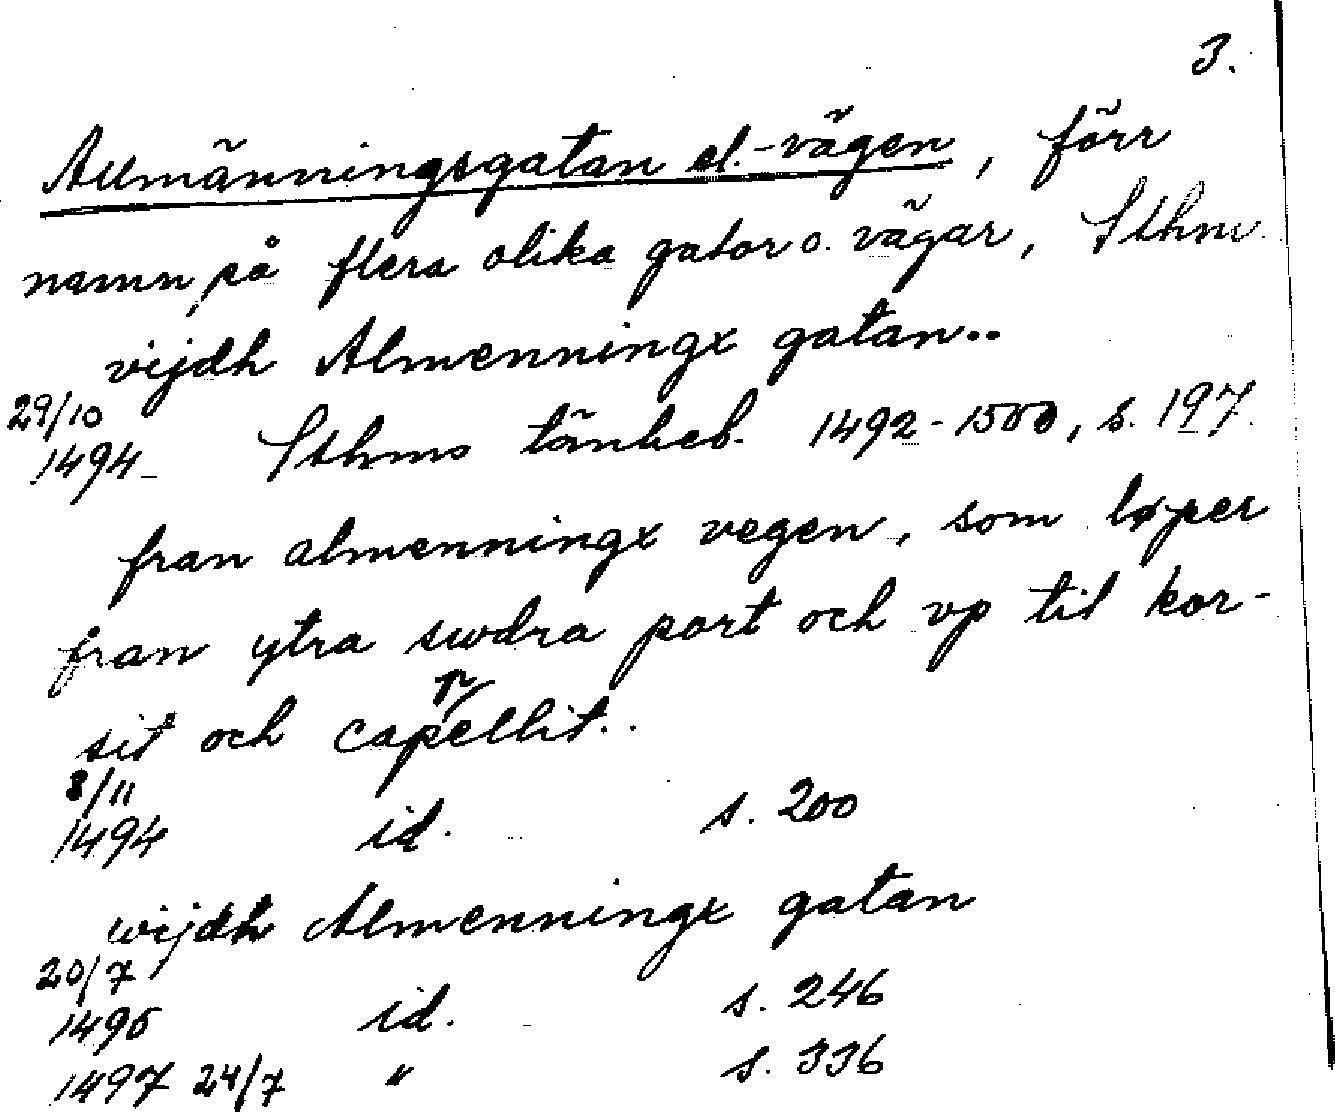 3.
Allmänningsgatan el. -vägen, förr
namn på flera olika gator o. vägar, Sthm.
vijdh Almenningx gatan..
29/10
1494 Sthms tänkeb. 1492-1500, s. 197.
fran almenningx vegen, som løper
fran ytra swdra port och vp til kor-
sit och capellit..
p
8/11
1494 id. s. 200
wijdh Almenningx gatan
20/7
1495 id. s. 246
1497 24/7 " s. 336